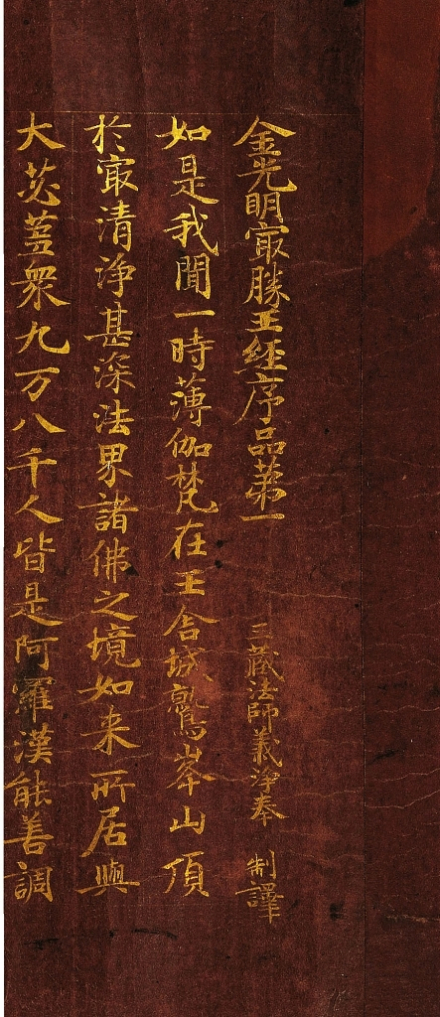 金光明冣勝王經序品第一 三藏法師義淨奉 制譯
如是我聞一時薄伽梵在王舍城鷲峯山頂
於冣清淨甚深法界諸佛之境如来所居與
大苾蒭衆九万八千人皆是阿羅漢能善調